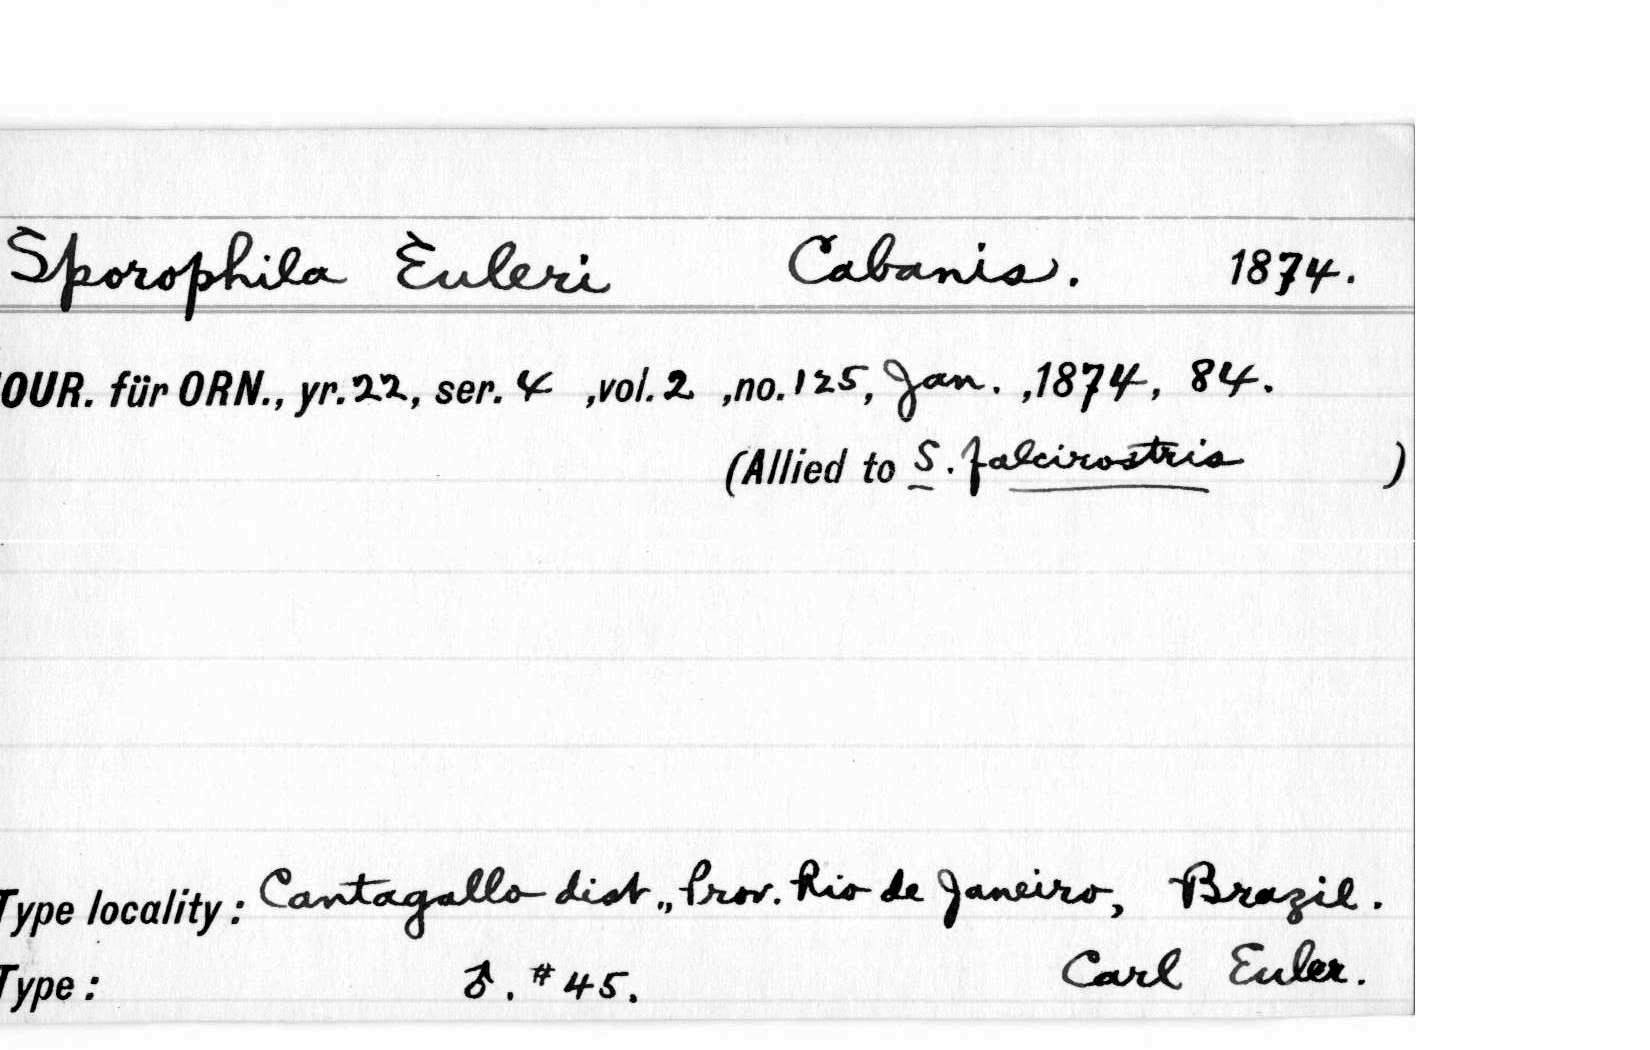 Sporophila Euleri Cabanis. 1874.
OUR. für ORN., yr. 22, ser. 4 ,vol. 2 ,no. 125, Jan. ,1874, 84.
(Allied to S. falcirostris )
Type locality: Cantagallo dist., Prov. Rio de Janeiro, Brazil.
Type: ♂. #45. Carl Euler.